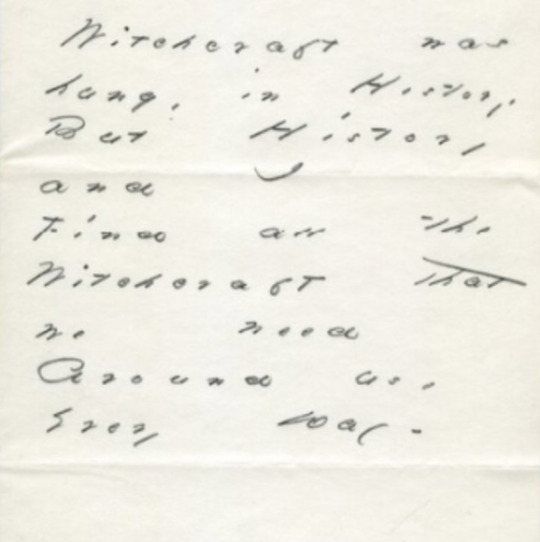 Witchcraft was
hung, in History,
But History
and I
Find all the
Witchcraft that
we need
Around us,
Every Day -